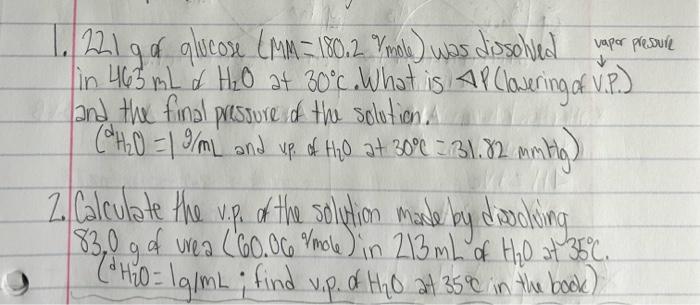 1. 221 g of glucose (MM=180.2 g/mole) was dissolved
vapor pressure
↓
in 463 mL of H₂O at 30°C. What is ΔP (lowering of V.P.)
and the final pressure of the solution.
(dH₂O = 1 g/mL and v.p. of H₂O at 30°C = 31.82 mmHg)
2. Calculate the v.p. of the solution made by dissolving
83.0 g of urea (60.06 g/mole) in 213 mL of H₂O at 35°C.
(dH₂O = 1g/mL ; find v.p. of H₂O at 35°C in the book)